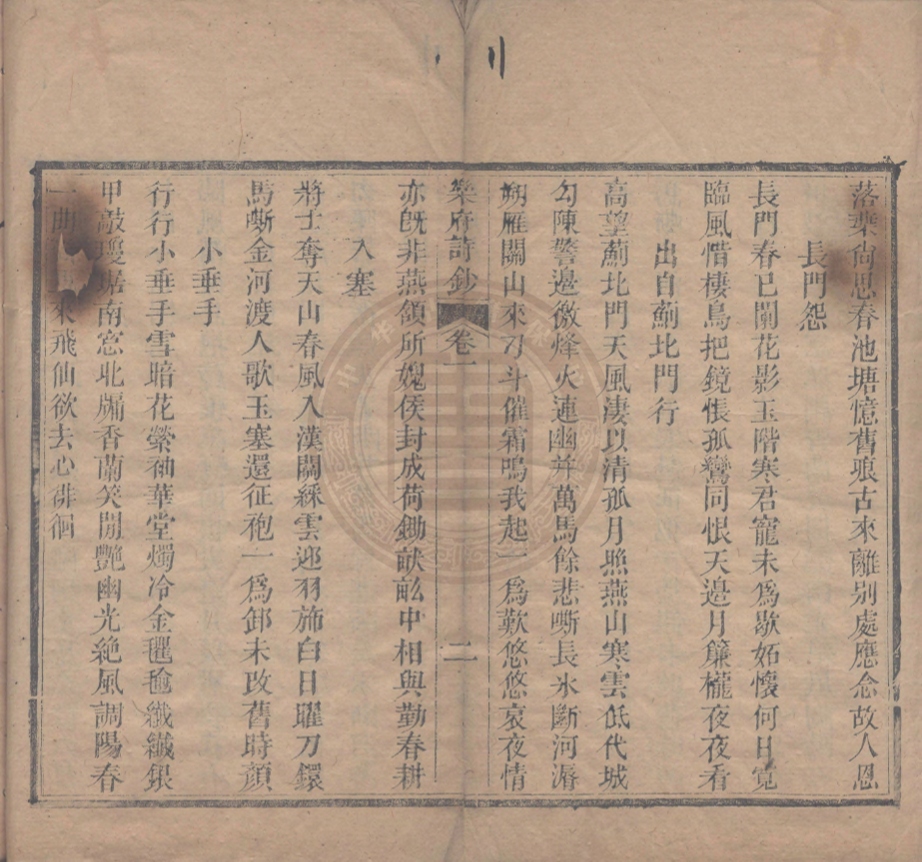 落葉尚思春池塘憶舊痕古來離別處應念故人恩
長門怨
長門春已闌花影玉階寒君寵未為歇妬懷何日寬
臨風惜棲鳥把鏡悵孤鸞同恨天邊月簾櫳夜夜看
出自薊北門行
高望薊北門天風淒以清孤月照燕山寒雲低代城
勾陳警邊徼烽火連幽并萬馬餘悲嘶長氷斷河滣
朔雁關山來刁斗催霜鳴我起一為歎悠悠哀夜情
樂府詩鈔 卷一 二
亦旣非燕頷所媿侯封成荷鋤畎畝中相與勤春耕
入塞
將士奪天山春風入漢關綵雲迎羽斾白日耀刀鐶
馬嘶金河渡人歌玉塞還征袍一為卸未改舊時顏
小垂手
行行小垂手雪暗花縈袖華堂燭冷金㲯毺纖纖銀
甲敲瓊琚南窓北牖香蘭笑閒艷幽光絶風調陽春
一曲來飛仙欲去心徘徊